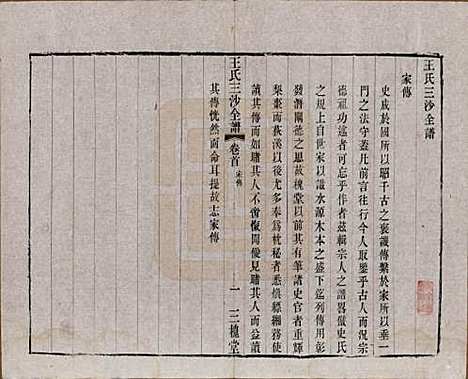 王氏三沙全譜
家傳
史成於國所以昭千古之褒譏傳繫於家所以垂一
門之法守蓋凡前言往行今人取鑒乎古人而況宗
德祖功遙者可忘乎作者茲輯宗人之譜畧倣史氏
之規上自世家以識水源木本之盛下迄列傳用彰
發潛闡德之思故槐堂以前其有筆諸史官者重輝
梨棗而荻溪以後尤多奉為枕秘者悉慎縹緗務使
讀其傳如睹其人不啻愾聞僾見睹其人而益讀
其傳恍然面命耳提故志家傳
王氏三沙全譜
卷首
家傳
一
三槐堂